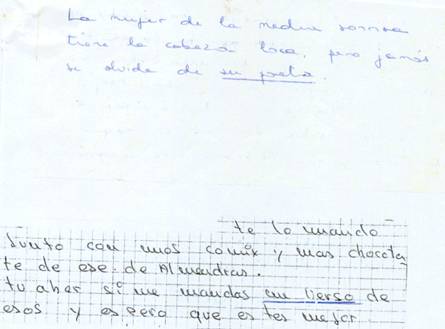 La mujer de la media sonrisa
tiene la cabeza loca, pero jamás
se olvida de su poeta.
te lo mando
Junto con unos comix y mas chocola
te de ese de Almendras.
tu aber si me mandas un Verso de
esos y espero que estes mejor